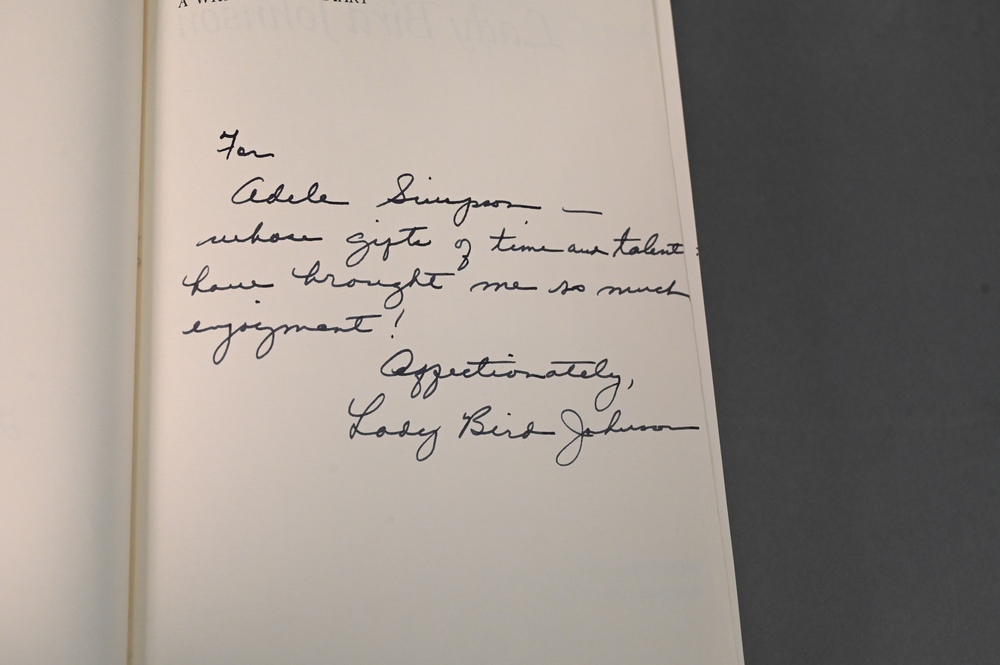 For
Adele Simpson —
whose gifts of time and talent
have brought me so much
enjoyment!
Affectionately,
Lady Bird Johnson
Lady Bird Johnson